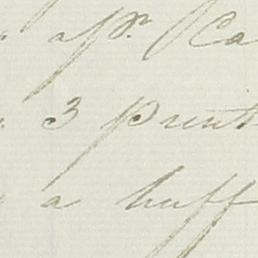 apr. Ca
3 print
a buff